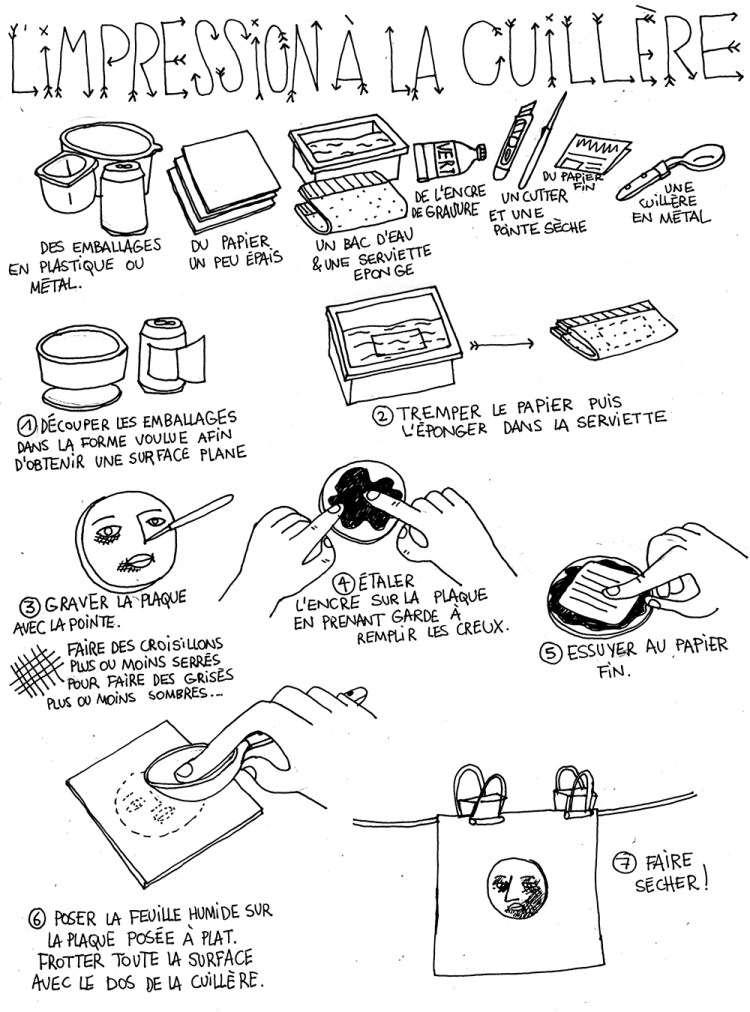 L'IMPRESSION À LA CUILLÈRE
DES EMBALLAGES
EN PLASTIQUE OU
MÉTAL.
DU PAPIER
UN PEU ÉPAIS
UN BAC D'EAU
& UNE SERVIETTE
EPONGE
VERT
DE L'ENCRE
DE GRAVURE
UN CUTTER
ET UNE
POINTE SÈCHE
DU PAPIER
FIN
UNE
CUILLÈRE
EN MÉTAL
① DÉCOUPER LES EMBALLAGES
DANS LA FORME VOULUE AFIN
D'OBTENIR UNE SURFACE PLANE
② TREMPER LE PAPIER PUIS
L'ÉPONGER DANS LA SERVIETTE
③ GRAVER LA PLAQUE
AVEC LA POINTE.
FAIRE DES CROISILLONS
PLUS OU MOINS SERRÉS
POUR FAIRE DES GRISÉS
PLUS OU MOINS SOMBRES...
④ ÉTALER
L'ENCRE SUR LA PLAQUE
EN PRENANT GARDE À
REMPLIR LES CREUX.
⑤ ESSUYER AU PAPIER
FIN.
⑥ POSER LA FEUILLE HUMIDE SUR
LA PLAQUE POSÉE À PLAT.
FROTTER TOUTE LA SURFACE
AVEC LE DOS DE LA CUILLÈRE.
⑦ FAIRE
SÉCHER!